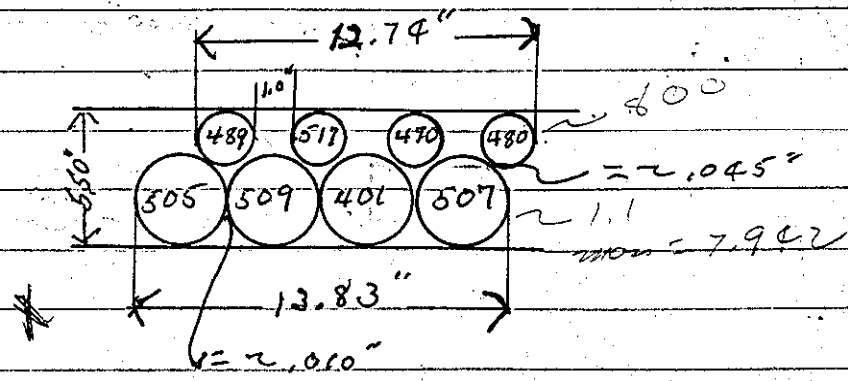 12.74"
1.0"
489 517 470 480
5.50"
= ~ .045"
505 509 401 507
~ 1.1
= 7.942
13.83"
= ~ .010"